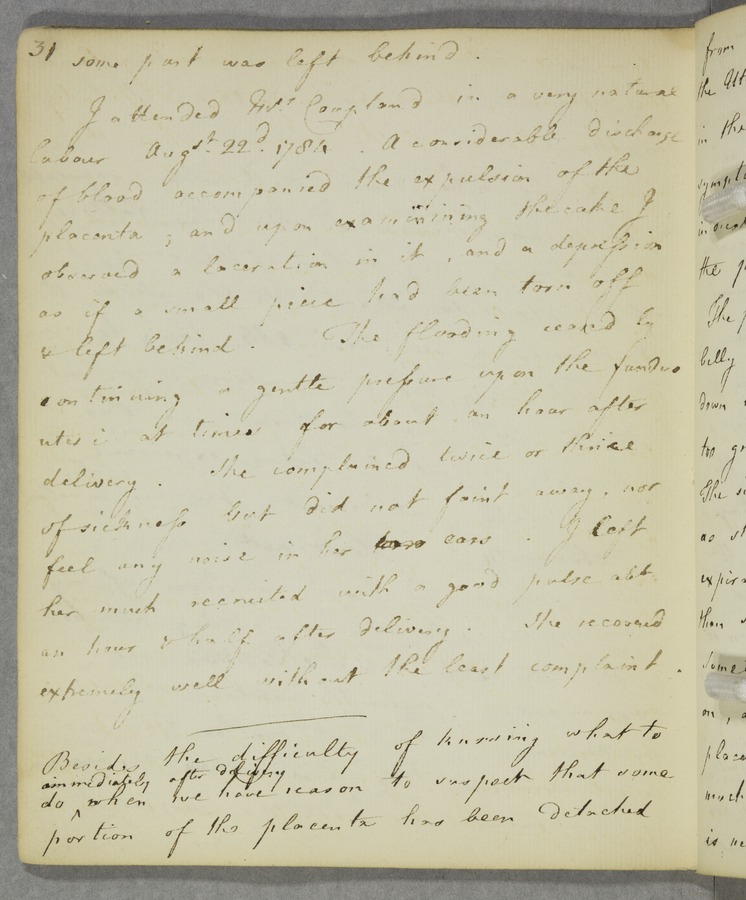 31
some part was left behind.
I attended Mrs. Coupland in a very natural
labour Augst. 22d. 1784. A considerable discharge
of blood accompanied the expulsion of the
placenta; and upon examining the cake I
observed a laceration in it, and a depression
as if a small piece had been torn off
& left behind. The flooding ceased by
continuing a gentle pressure upon the fundus
uteri at times for about an hour after
delivery. She complained twice or thrice
of sickness but did not faint away, nor
feel any noise in her ears. I left
her much recruited with a good pulse abt.
an hour & half after delivery. She recovered
extremely well without the least complaint.
Besides the difficulty of knowing what to
immediately after delivery
do ^ when we have reason to suspect that some
portion of the placenta has been detached
from
the
in the
the
The
belly
down
too
The
as
then
some
on,
much
is